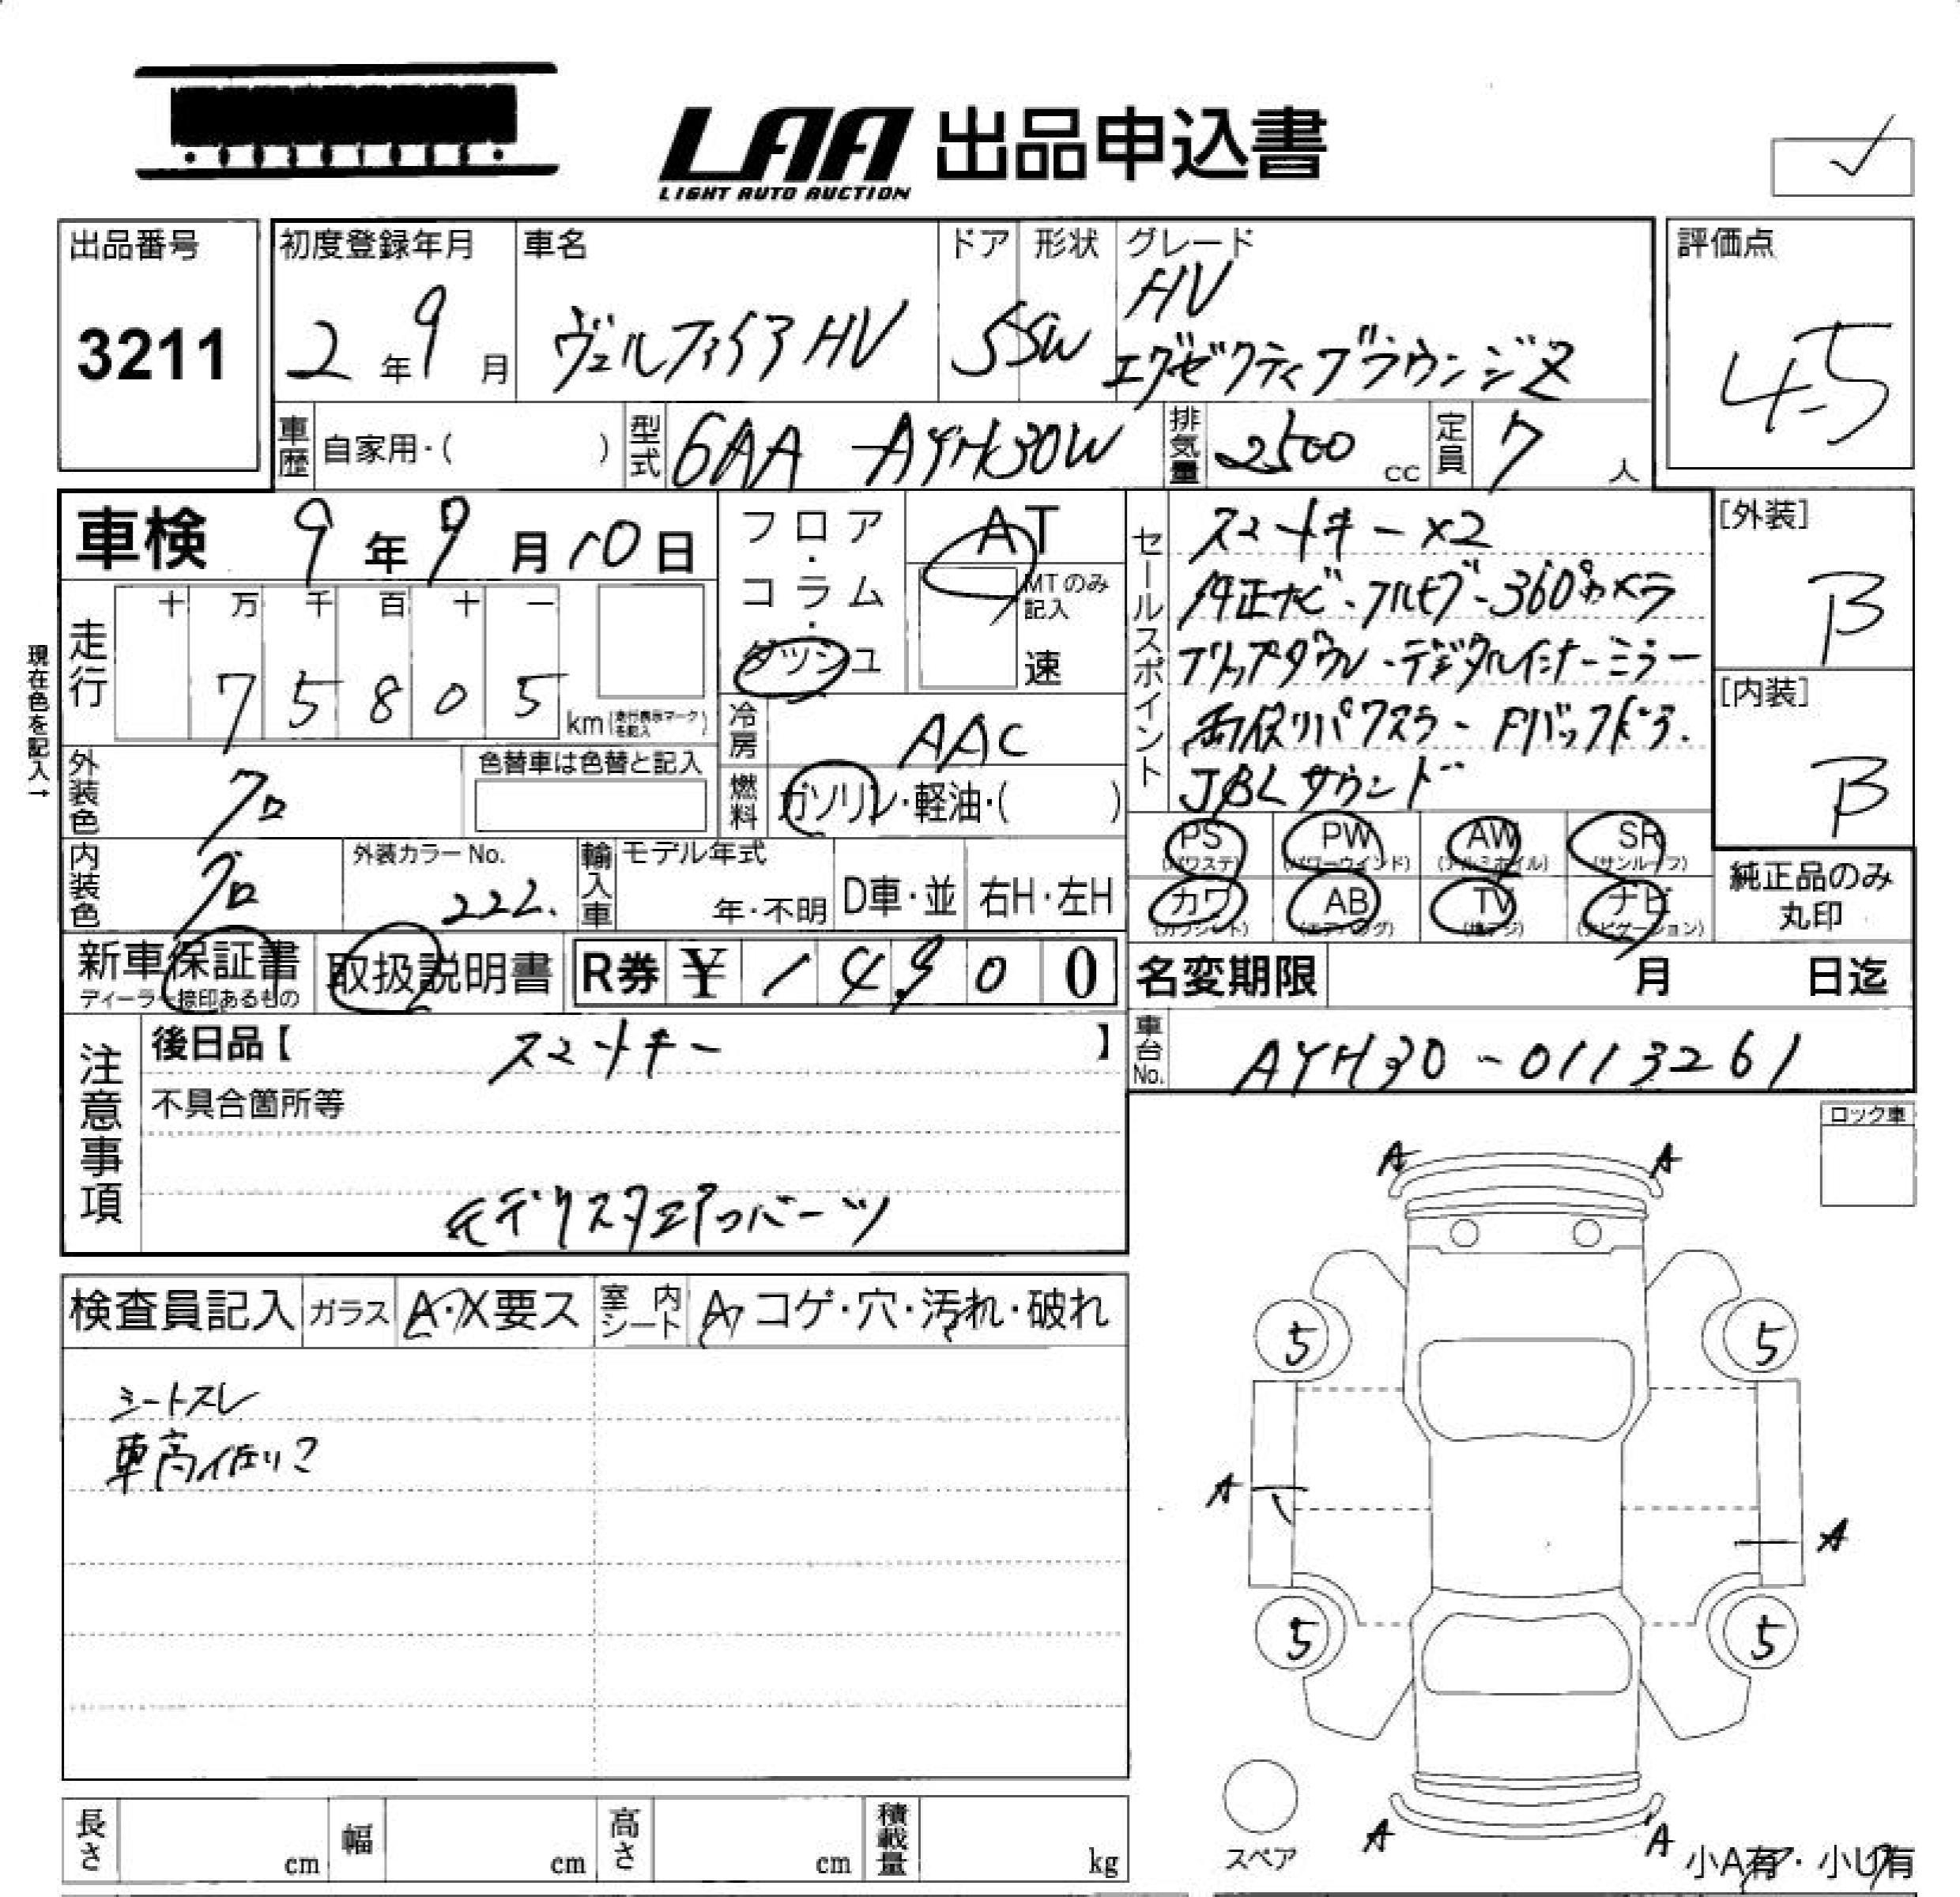 LAA 出品申込書
LIGHT AUTO AUCTION
出品番号
3211
初度登録年月
2年9月
車名
ヴェルファイアHV
ドア 形状
5 SW
グレード
HV
エグゼクティブラウンジZ
評価点
4.5
車歴 自家用・( )
型式 6AA-AYH30W
排気量 2500 cc
定員 7人
車検 9年9月10日
フロア・コラム・ダッシュ
AT
MTのみ記入
速
走行
十 万 千 百 十 一
7 5 8 0 5 km (走行表示マークを記入)
現在色を記入→
外装色 クロ
色替車は色替と記入
冷房 AAC
燃料 ガソリン・軽油・( )
内装色 クロ
外装カラーNo.
222.
輸入車
モデル年式
年・不明
D車・並
右H・左H
セールスポイント
スマートキー×2
純正ナビ・フルセグ・360°カメラ
フリップダウン・デジタルインナーミラー
両側パワスラ・Pバックドア.
JBLサウンド
[外装]
B
[内装]
B
PS (パワステ)
PW (パワーウインド)
AW (アルミホイル)
SR (サンルーフ)
カワ (カワシート)
AB (エアバッグ)
TV (地デジ)
ナビ (ナビゲーション)
純正品のみ
丸印
新車保証書
ディーラー捺印あるもの
取扱説明書
R券 ¥ 14900
名変期限 月 日迄
注意事項
後日品【 スマートキー 】
不具合箇所等
モデリスタエアロパーツ
車台No. AYH30-0113261
ロック車
検査員記入
ガラス A・X要ス
室内シート A・コゲ・穴・汚れ・破れ
シートスレ
車高低い?
A A
5 5
A
A
5 5
A A
スペア
小A有・小U有
長さ cm
幅 cm
高さ cm
積載量 kg